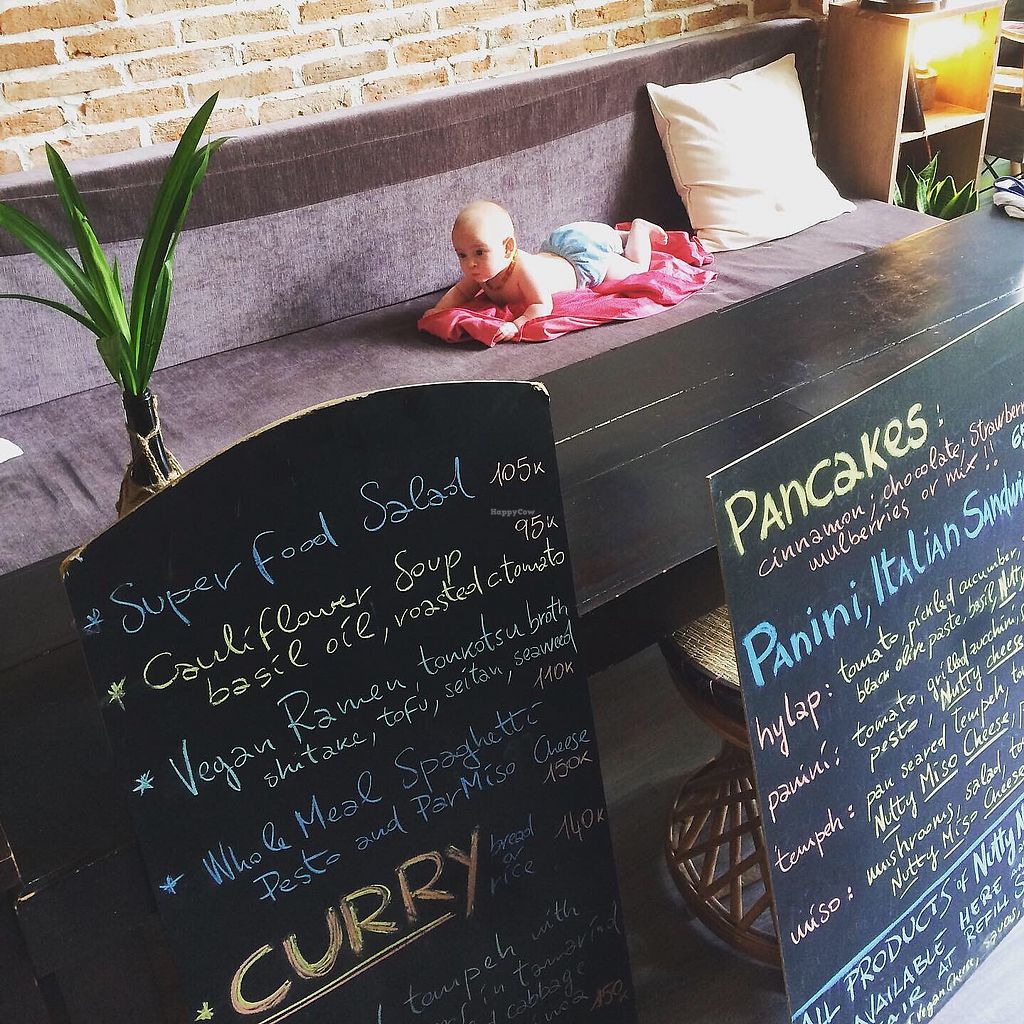 * Superfood Salad 105k
* Cauliflower Soup 95k
basil oil, roasted c-tomato
* Vegan Ramen, tonkotsu broth
shitake, tofu, seitan, seaweed
110k
* Whole Meal Spaghetti
Pesto and ParMiso Cheese
150k
* CURRY bread or rice 140k
tempeh with
in tamarind
cabbage
150k
PANCAKES:
cinnamon; chocolate; strawberry
mulberries or mix!!
Panini, Italian Sandwi
hylap: tomato, pickled cucumber,
black olive paste, basil, Nutty
panini: tomato, grilled zucchini,
pesto, Nutty cheese
tempeh: pan seared Tempeh, to
Nutty Miso Cheese, p
miso: mushrooms, salad, to
Nutty Miso Cheese
ALL PRODUCTS of Nutty
AVAILABLE HERE
AIR AT REFILL S
Vegan Cheese,
HappyCow